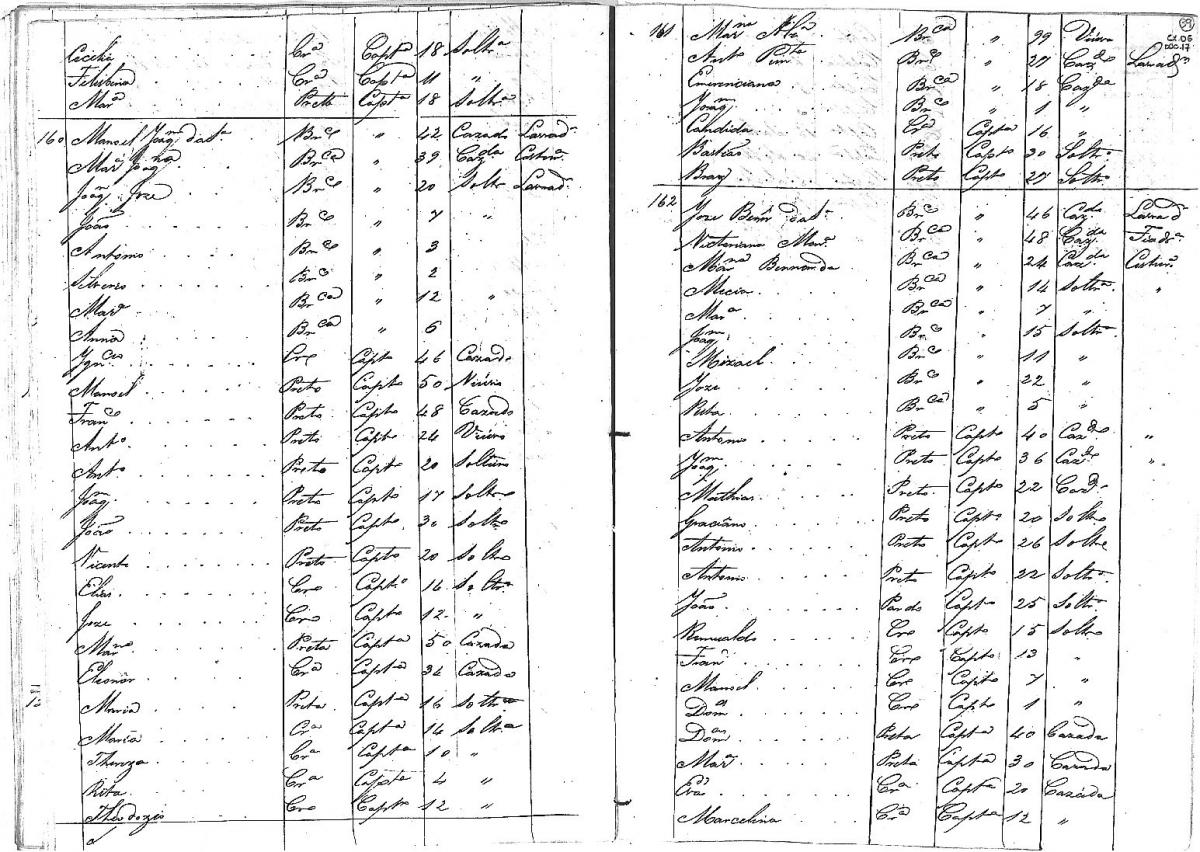 Cecilia Crª Captª 18 Soltrª
Felisbina Crª Captª 11 "
Marª Preta Captª 18 Soltrª
160 Manoel Joaqm da Sª Brco " 42 Cazado Lavradr
Marª Joaqna Brca " 39 Cazda Costurª
Joaqm Joze Brco " 20 Soltro Lavradr
João Brco " 7 "
Antonio Brco " 3
Silverio Brco " 2
Marª Brca " 12 "
Anna Brca " 6
Ignco Cro Capto 46 Cazado
Manoel Preto Capto 50 Viuvo
Franco Preto Capto 48 Cazado
Anto Preto Capto 24 Viuvo
Anto Preto Capto 20 Solteiro
Joaqm Preto Capto 17 Soltro
João Preto Capto 30 Soltro
Vicente Preto Capto 20 Soltro
Elias Cro Capto 16 Soltro
Joze Cro Capto 12 "
Preta Captª 50 Cazada
Eleonor Crª Captª 34 Cazada
Maria Preta Captª 16 Soltrª
Maria Crª Captª 14 Soltrª
Thereza Crª Captª 10 "
Rita Crª Captª 4 "
Theodozio Cro Capto 12 "
69
CX.06
DOC.17
161 Brca " 99 Viuva
Anto Brco " 27 Cazdo Lavradr
Emerenciana Brca " 18 Cazda
Joaqm Brco " 1 "
Candida Crª Captª 16 "
Bastião Preto Capto 30 Soltro
Braz Preto Capto 27 Soltro
162 Joze Bento da Sª Brco " 46 Cazdo Lavradr
Victoriana Marª Brca " 48 Cazda Fiadrª
Marª Bernarda Brca " 24 Cazda Costurª
Brca " 14 Soltrª "
Marª Brca " 7 "
Joaqm Brco " 15 Soltro
Mizael Brco " 11 "
Joze Brco " 22 "
Rita Brca " 5 "
Antonio Preto Capto 40 Cazdo "
Joaqm Preto Capto 36 Cazdo "
Mathias Preto Capto 22 Cazdo
Graciano Preto Capto 20 Soltro
Antonio Preto Capto 26 Soltro
Antonio Preto Capto 22 Soltro
João Pardo Capto 25 Soltro
Romualdo Cro Capto 15 Soltro
Franco Cro Capto 13 "
Manoel Cro Capto 7 "
Domos Cro Capto 1 "
Domas Preta Captª 40 Cazada
Marª Preta Captª 30 Cazada
Crª Captª 20 Cazada
Marcelina Crª Captª 12 "